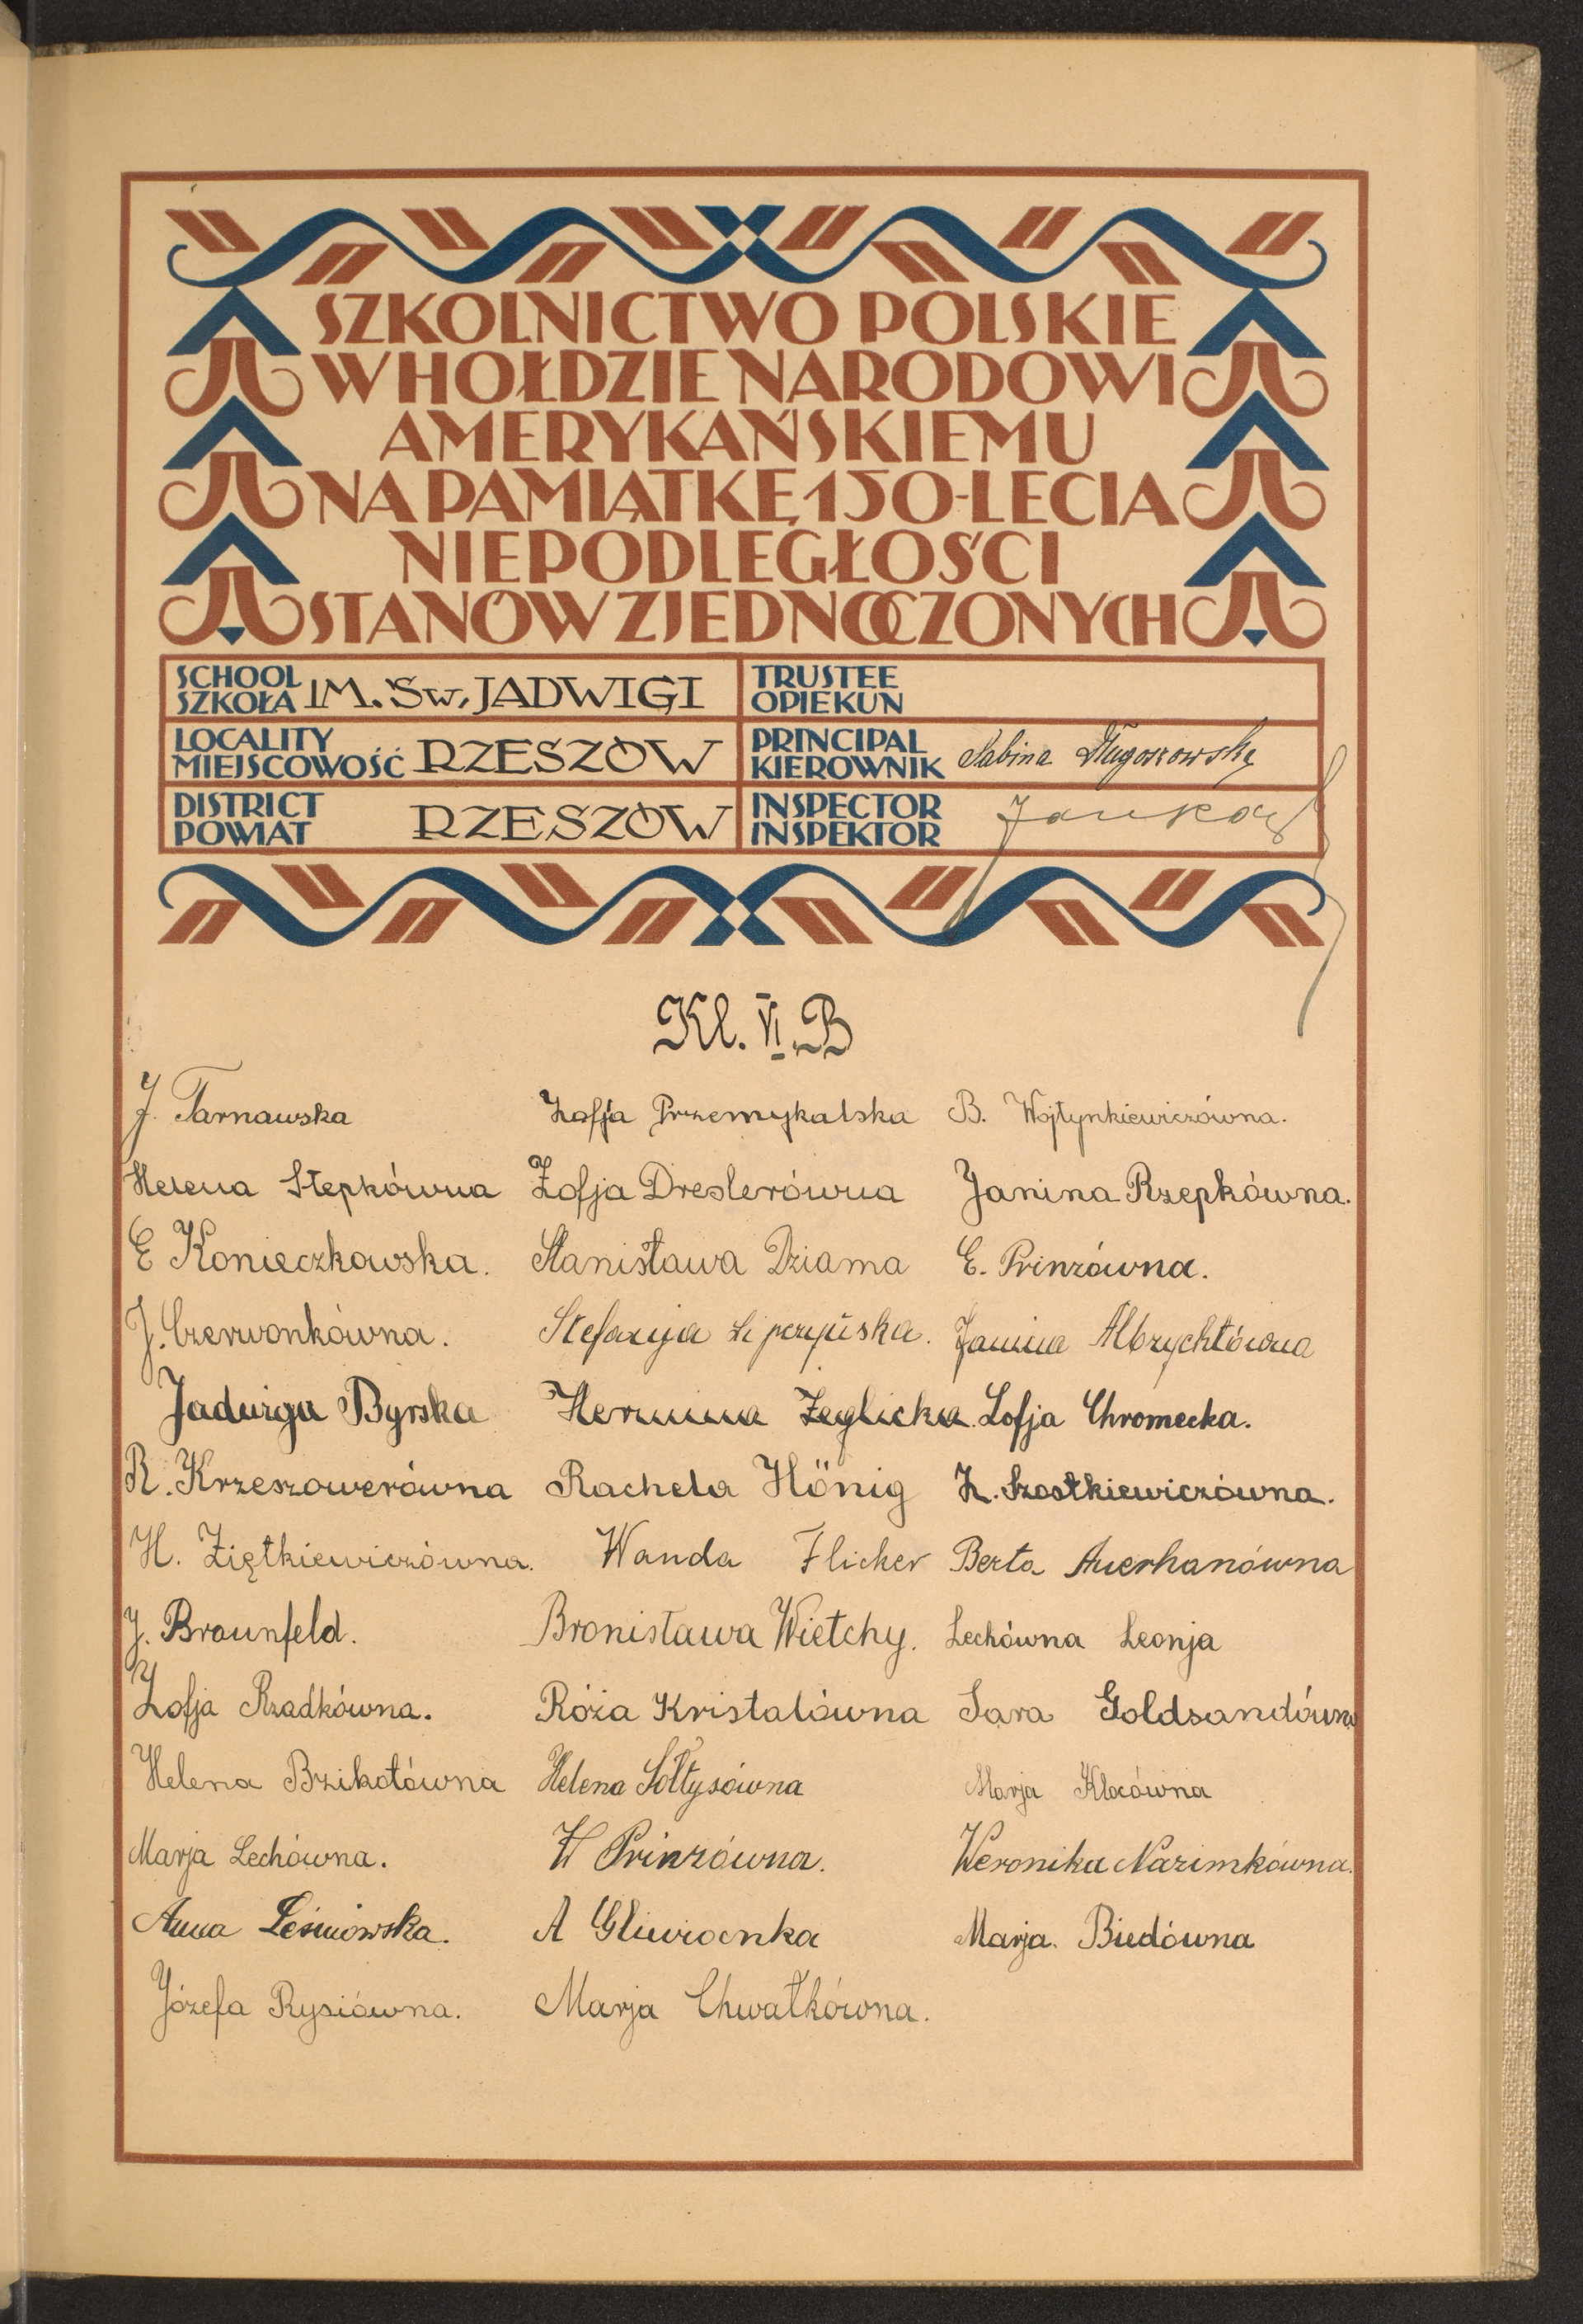 SZKOLNICTWO POLSKIE
W HOŁDZIE NARODOWI
AMERYKAŃSKIEMU
NA PAMIĄTKĘ 150-LECIA
NIEPODLEGŁOŚCI
STANÓW ZJEDNOCZONYCH
SCHOOL
SZKOŁA IM. Św. JADWIGI
TRUSTEE
OPIEKUN
LOCALITY
MIEJSCOWOŚĆ RZESZÓW
PRINCIPAL
KIEROWNIK Sabina Długoszowska
DISTRICT
POWIAT RZESZÓW
INSPECTOR
INSPEKTOR
Kl. VI. B
J. Tarnawska Zofja Przemykalska B. Wojtynkiewiczówna.
Helena Stepkówna Zofja Dreslerówna Janina Rzepkówna.
E Konieczkowska. Stanisława Dziama E. Prinzówna.
J. Czerwonkówna. Stefanja Lipczyńska. Janina Albrychtówna
Jadwiga Byrska Hermina Żeglicka. Zofja Chromecka.
R. Krzeszowerówna Rachela Hönig Z. Szostkiewiczówna.
H. Ziętkiewiczówna. Wanda Flicker Berta Auerhanówna
J. Braunfeld. Bronisława Wietchy. Lechówna Leonja
Zofja Rzadkówna. Róża Kristalówna Sara Goldsandówna
Helena Bzikotówna Helena Sołtysówna Marja Klocówna
Marja Lechówna. W Prinzówna. Weronika Nazimkówna.
Anna Leśniowska. A Gliwionka Marja Biedówna
Józefa Rysiówna. Marja Chwałkówna.